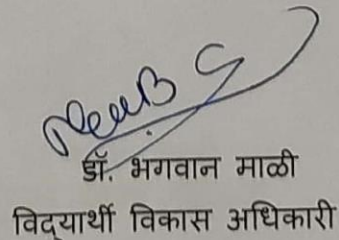 डॉ. भगवान माळी
विद्यार्थी विकास अधिकारी